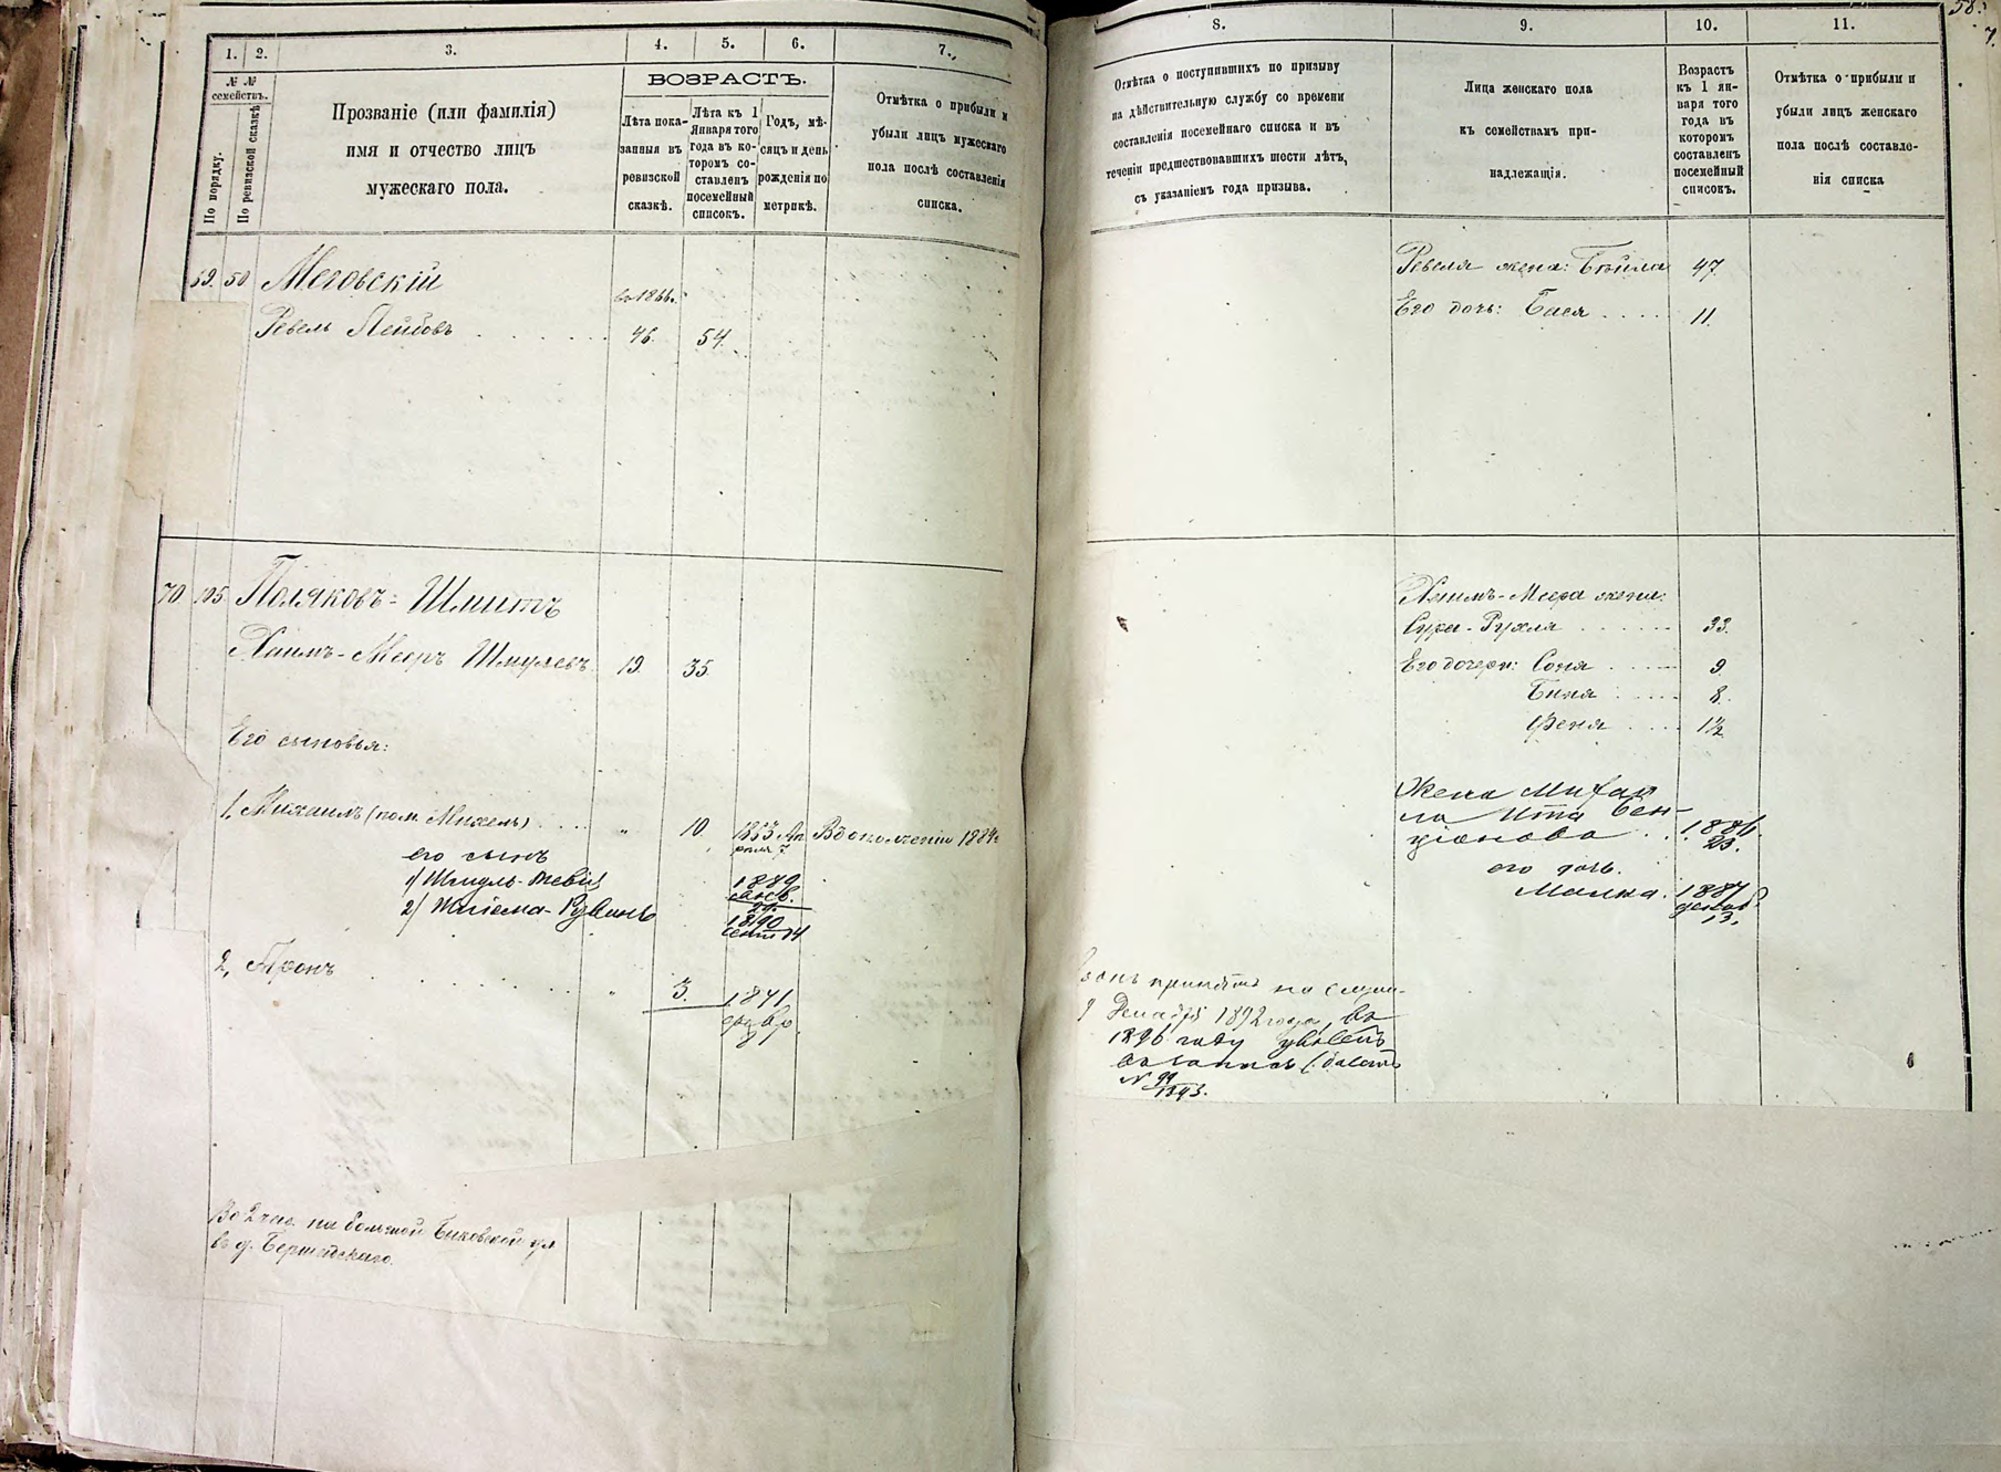 1. 2. 3. 4. 5. 6. 7.
№ № семействъ.
По порядку.
По ревизской сказкѣ
Прозваніе (или фамилія)
имя и отчество лицъ
мужескаго пола.
ВОЗРАСТЪ.
Лѣта пока-
занныя въ
ревизской
сказкѣ.
Лѣта къ 1
Января того
года въ ко-
торомъ со-
ставленъ
посемейный
списокъ.
Годъ, мѣ-
сяцъ и день
рожденія по
метрикѣ.
Отмѣтка о прибыли и
убыли лицъ мужескаго
пола послѣ составленія
списка.
50 Меговскій
въ 1866.
Ревель Лейбовъ 46. 54.
70. 105 Поляковъ-Шмитъ
Хаимъ-Мееръ Шмулевъ 19. 35.
Его сыновья:
1, Михаилъ (пом. Михель) „ 10.
Въ ополченіи 1884г
его сынъ
1/ Шмуль-
1889
2/ -Рувинъ
1890
сент 14
2, „ 3.
1871
февр.
на большой ул
въ д. Бершадскаго.
58.
7.
8. 9. 10. 11.
Отмѣтка о поступившихъ по призыву
на дѣйствительную службу со времени
составленія посемейнаго списка и въ
теченіи предшествовавшихъ шести лѣтъ,
съ указаніемъ года призыва.
Лица женскаго пола
къ семействамъ при-
надлежащія.
Возрастъ
къ 1 ян-
варя того
года въ
которомъ
составленъ
посемейный
списокъ.
Отмѣтка о прибыли и
убыли лицъ женскаго
пола послѣ составле-
нія списка
Ревеля жена: Бейла 47.
Его дочь: Бася 11.
Хаимъ-Меера жена:
Сура-Рухля 33.
Его дочери: Соня 9
8.
Феня 1½
Жена Михаи
ла Ита Бен-
ціонова 1886
23.
его дочь.
Малка. 1887
декаб
13.
принятъ на служ-
9 Декабря 1892 года, въ
1896 году уволенъ
въ запасъ (билетъ
№ 99
1893.